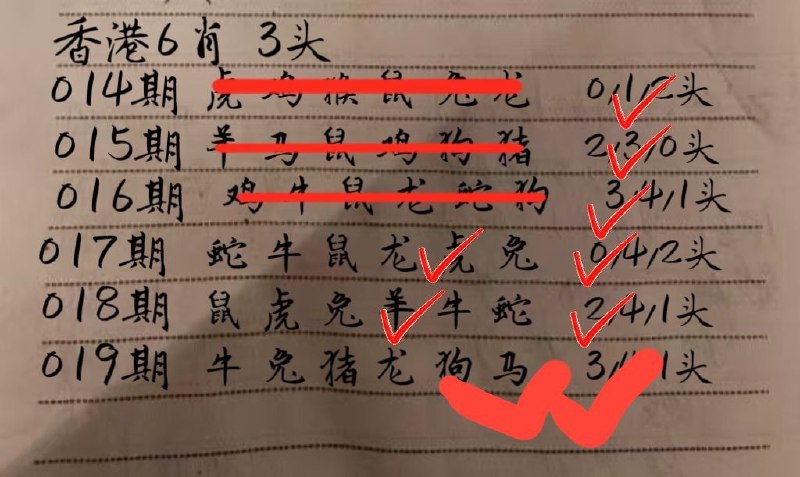 香港6肖 3头
014期 虎 鸡 猴 鼠 兔 龙 0/1/2头
015期 羊 马 鼠 鸡 狗 猪 2/3/0头
016期 鸡 牛 鼠 龙 蛇 狗 3/4/1头
017期 蛇 牛 鼠 龙 虎 兔 0/4/2头
018期 鼠 虎 兔 羊 牛 蛇 2/4/1头
019期 牛 兔 猪 龙 狗 马 3/4/1头